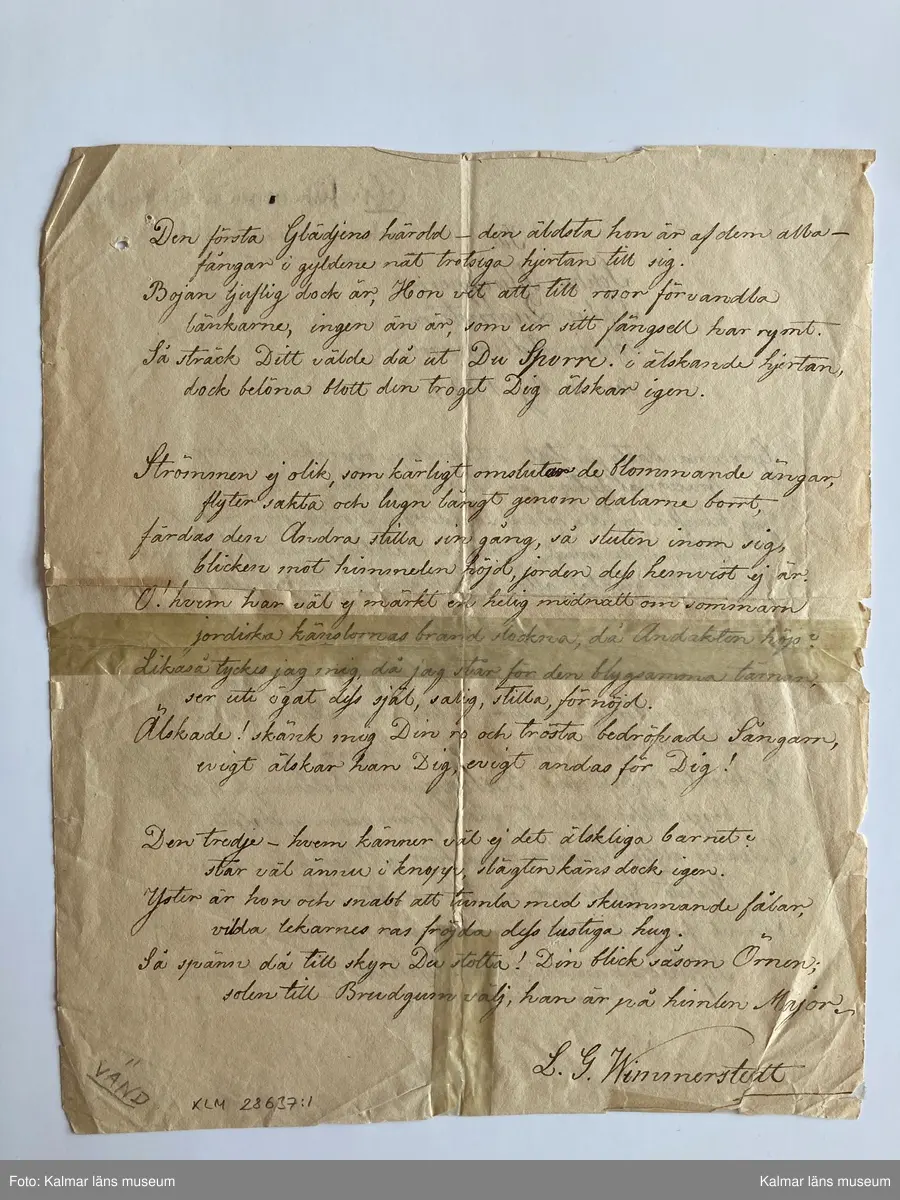 Den första Glädjens härold – den äldsta hon är af dem alla –
fångar i gyldene nät trotsiga hjertan till sig.
Bojan ljuflig dock är, Hon vet att till rosor förvandla
länkarne, ingen än är, som ur sitt fängsell har rymt.
Så sträck Ditt välde då ut Du Sparre! i älskande hjertan,
dock belöna blott den troget Dig älskar igen.
Strömmen ej olik, som kärligt omslutar de blommande ängar,
flyter sakta och lugn långt genom dalarne bortt,
färdas den Andra stilla sin gång, så sluten inom sig,
blicken mot himmelen höjd, jorden dess hemvist ej är.
O! hvem har väl ej märkt en helig midnatt om sommarn
jordiska känslornas brand slockna, då Andakten höjs?
Likaså tyckes jag mig, då jag står för den blygsamma tärnan,
ser uti ögat dess själ, salig, stilla, förnöjd.
Älskade! skänk mig Din ro och trösta bedröfvade Sångarn,
evigt älskar han Dig, evigt andas för Dig!
Den tredje – hvem känner väl ej det älskliga barnet?
står väl ännu i knopp, slägten käns dock igen.
Yster är hon och snabb att tumla med skummande fålar,
vilda lekarnes ras fröjda dess lustiga hug.
Så spänn då till skyn Du stolta! Din blick såsom Örnen;
solen till Brudgum välj, han är på himlen Major
L. G. Wimmerstedt
VÄND
KLM 28637:1
Foto: Kalmar läns museum
Kalmar läns museum